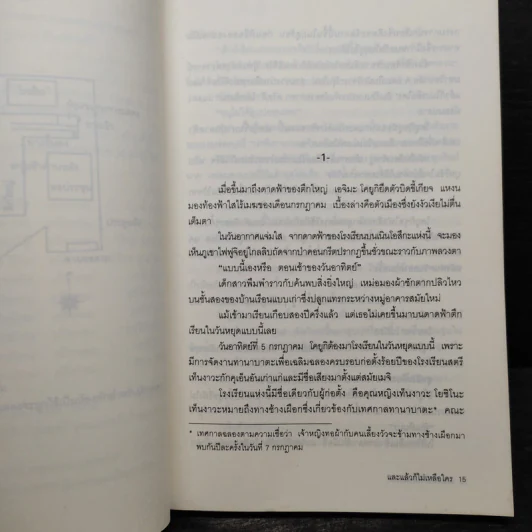 -1-
เมื่อขึ้นมาถึงดาดฟ้าของตึกใหญ่ เอจิมะ โคยูกิยืดตัวบิดขี้เกียจ แหงน
มองท้องฟ้าใสไร้เมฆของเดือนกรกฎาคม เบื้องล่างคือตัวเมืองซึ่งยังงัวเงียไม่ตื่น
เต็มตา
ในวันอากาศแจ่มใส จากดาดฟ้าของโรงเรียนบนเนินโอสึกะแห่งนี้ จะมอง
เห็นภูเขาไฟฟูจิอยู่ไกลลิบถัดจากป่าคอนกรีตปรากฏขึ้นชัดเจนราวกับภาพลวงตา
"แบบนี้เองหรือ ตอนเช้าของวันอาทิตย์"
เด็กสาวพึมพำราวกับค้นพบสิ่งยิ่งใหญ่ เหม่อมองผ้าซักตากปลิวไหว
บนชั้นสองของบ้านเรือนแบบเก่าซึ่งปลูกแทรกระหว่างหมู่อาคารสมัยใหม่
แม้เข้ามาเรียนเกือบสองปีครึ่งแล้ว แต่เธอไม่เคยขึ้นมาบนดาดฟ้าตึก
เรียนในวันหยุดแบบนี้เลย
วันอาทิตย์ที่ 5 กรกฎาคม โคยูกิต้องมาโรงเรียนในวันหยุดแบบนี้ เพราะ
มีการจัดงานทานาบาตะเพื่อเฉลิมฉลองครบรอบก่อตั้งร้อยปีของโรงเรียนสตรี
เท็นงาวะกักคุเอ็นอันเก่าแก่และมีชื่อเสียงมาตั้งแต่สมัยเมจิ
โรงเรียนแห่งนี้มีชื่อเดียวกับผู้ก่อตั้ง คือคุณหญิงเท็นงาวะ โยชิโนะ
เท็นงาวะหมายถึงทางช้างเผือกซึ่งเกี่ยวข้องกับเทศกาลทานาบาตะ* คณะ
* เทศกาลฉลองตามความเชื่อว่า เจ้าหญิงทอผ้ากับคนเลี้ยงวัวจะข้ามทางช้างเผือกมา
พบกันปีละครั้งในวันที่ 7 กรกฎาคม
และแล้วก็ไม่เหลือใคร 15